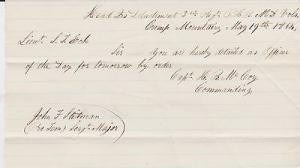 Head Qrs Detachment 3rd Regt P.H.B. Md Vols
Camp Mountain, May 19th 1864
Lieut. S. T. Eck
Sir You are hereby detailed as Officer
of the Day for tomorrow by order
Capt H. B. McCoy
Commanding
John F. Stitman
Sergt Major